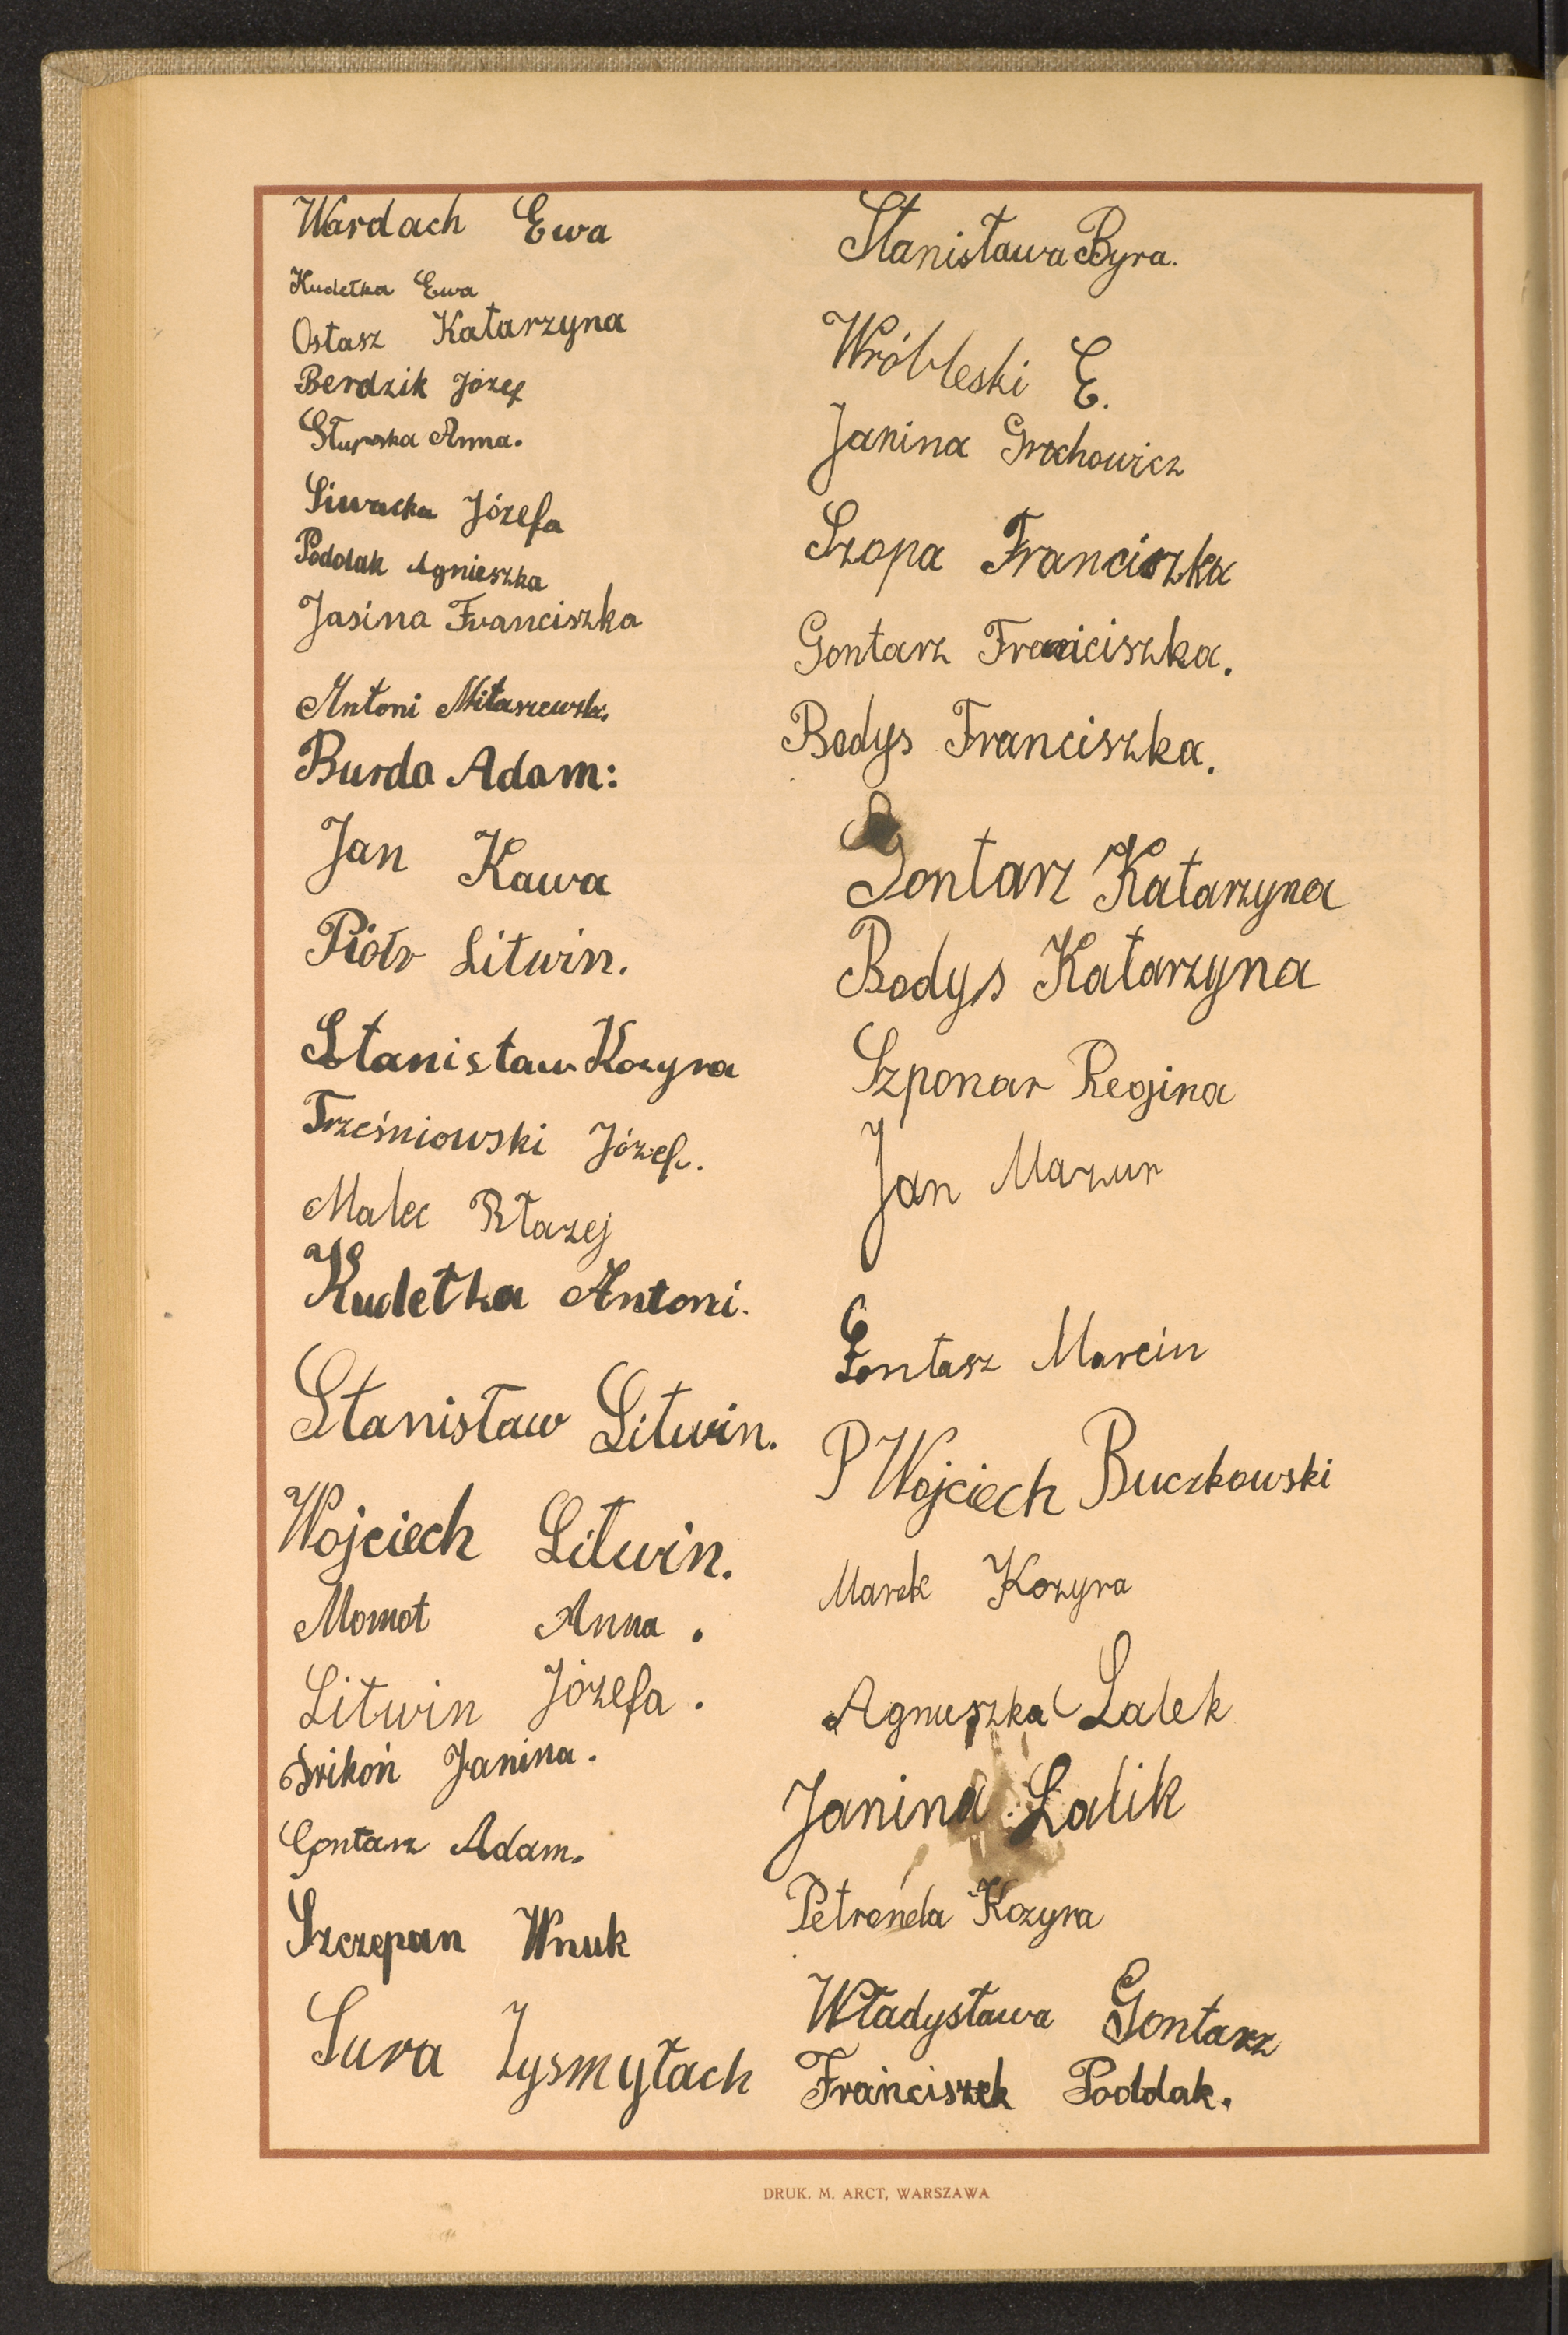 Wardach Ewa
Kudełka Ewa
Ostasz Katarzyna
Berdzik Józef
Słupska Anna.
Siwacka Józefa
Poddak Agnieszka
Jasina Franciszka
Antoni Miłaszewski.
Burda Adam:
Jan Kawa
Piotr Litwin.
Stanisław Kozyra
Trześniowski Józef.
Malec Błazej
Kudełka Antoni.
Stanisław Litwin.
Wojciech Litwin.
Momot Anna.
Litwin Józefa.
Janina.
Gontarz Adam.
Szczepan Wnuk
Sura Zysmyłach
Stanisława Byra.
Wróbleski E.
Janina Grochowicz
Szopa Franciszka
Gontarz Franiciszka.
Bodys Franciszka.
Gontarz Katarzyna
Bodys Katarzyna
Szponar Regina
Jan Mazur
Marcin
P Wojciech Buczkowski
Marek Kozyra
Agnuszka Lalek
Janina Lalik
Petronela Kozyra
Władysława Gontarz
Franciszek Poddak.
DRUK. M. ARCT, WARSZAWA